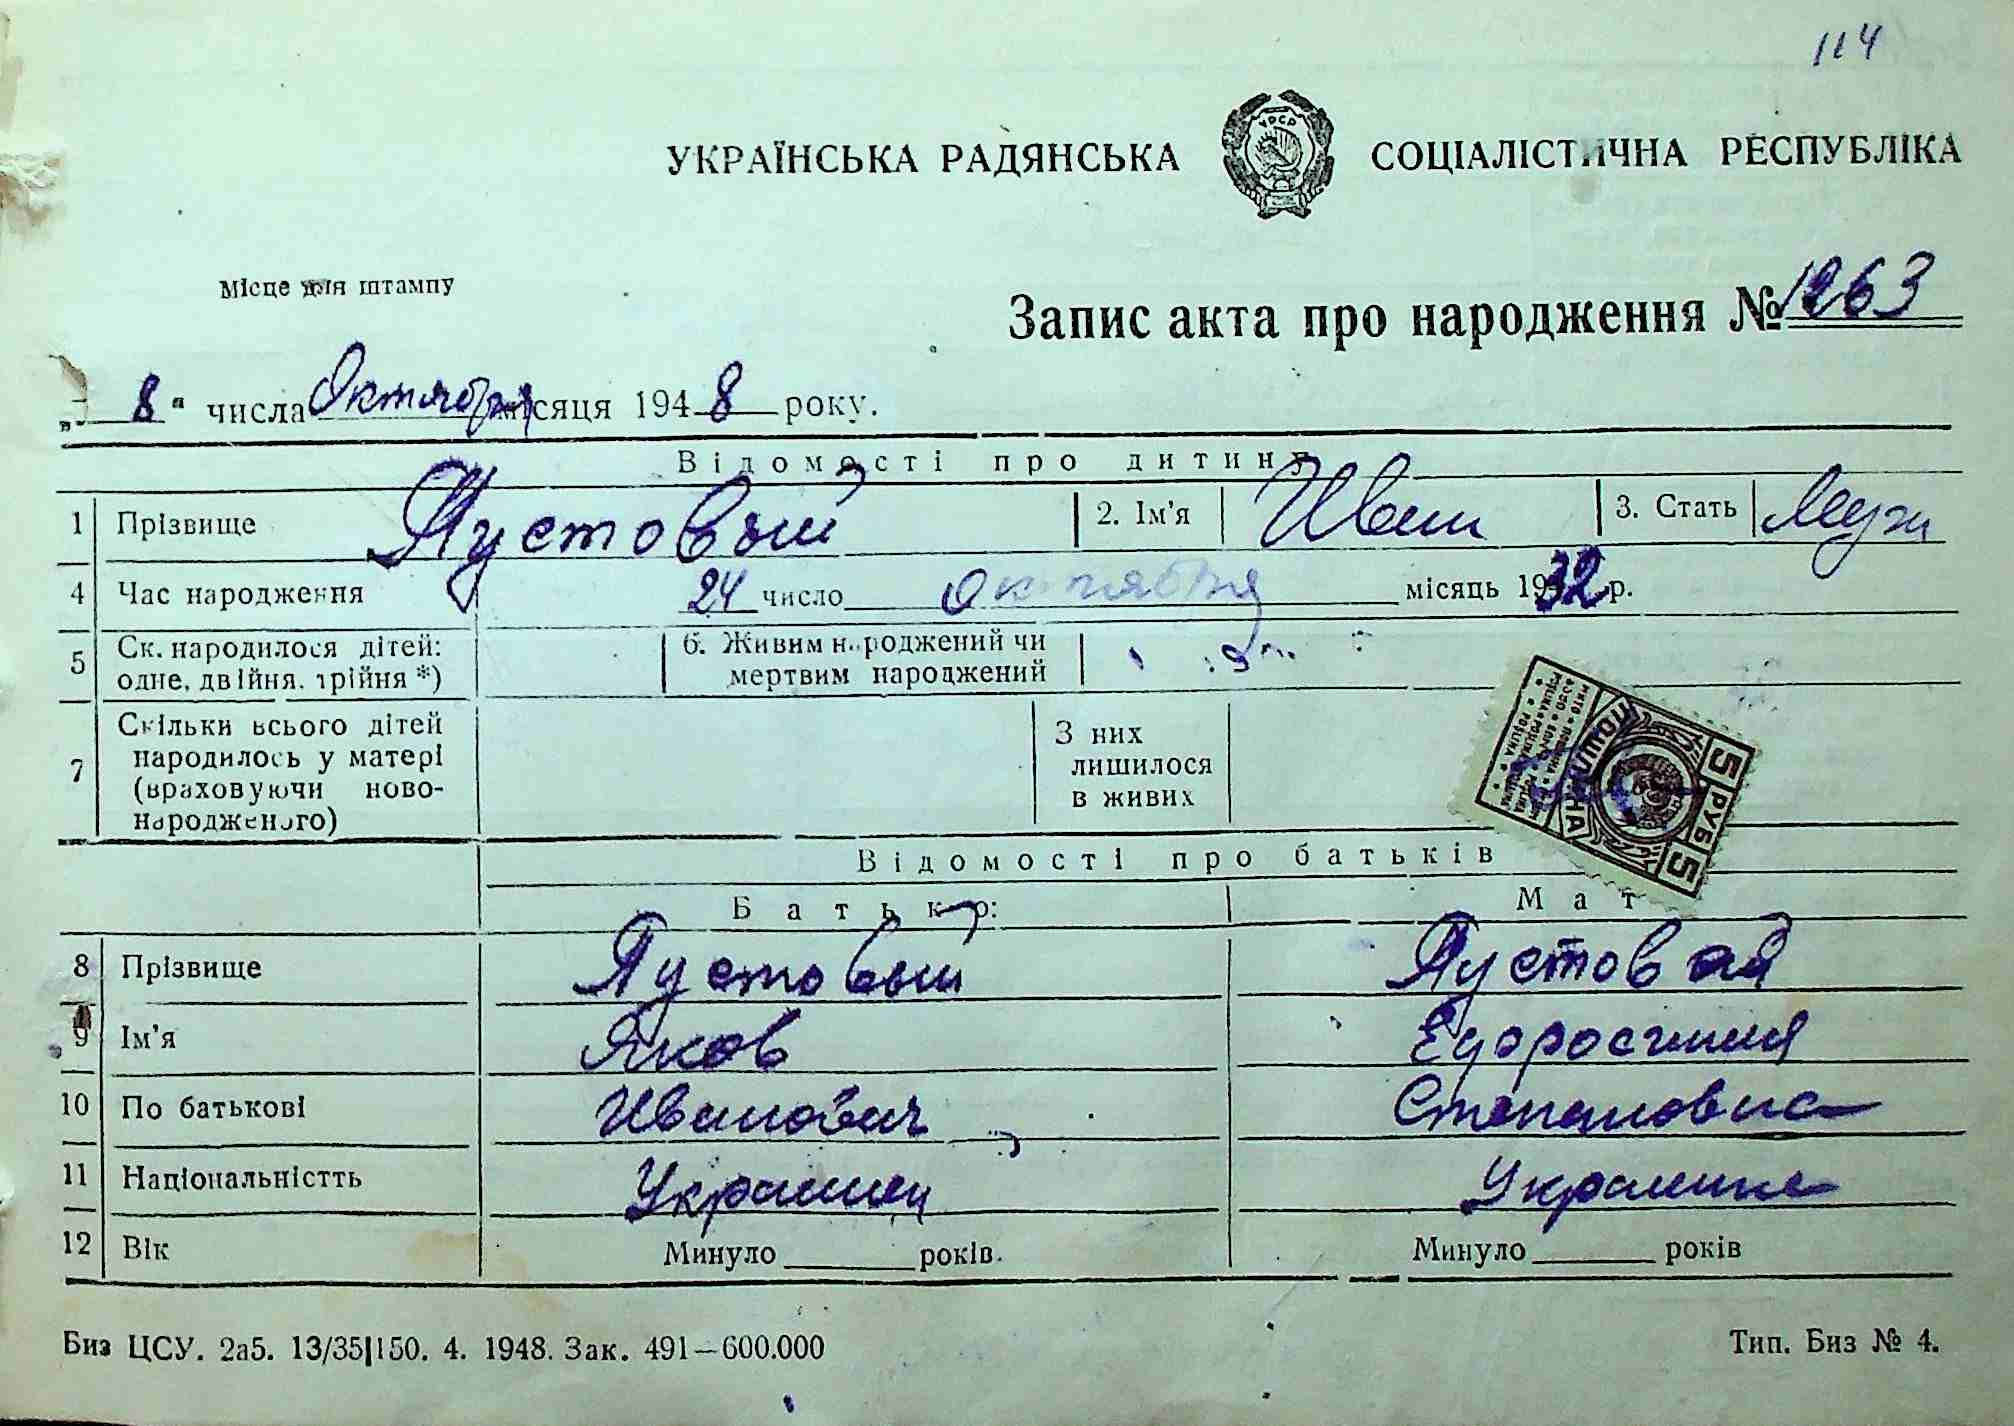 114
УКРАЇНСЬКА РАДЯНСЬКА СОЦІАЛІСТИЧНА РЕСПУБЛІКА
УРСР
Місце для штампу
Запис акта про народження № 1263
„ 8 " числа Октября місяця 1948 року.
Відомості про дитину
1 Прізвище Пустовый 2. Ім'я Иван 3. Стать Муж
4 Час народження 24 число октября місяць 1932 р.
5 Ск. народилося дітей: одне, двійня, трійня *) 6. Живим народжений чи мертвим народжений
7 Скільки всього дітей народилось у матері (враховуючи ново-народженого) З них лишилося в живих
5 РУБ 5
ПОШЛИНА
Відомості про батьків
Батько: Мат
8 Прізвище Пустовый Пустовая
9 Ім'я Яков Ефросиния
10 По батькові Иванович Степановна
11 Національністть Украинец Украинка
12 Вік Минуло років. Минуло років
Биз ЦСУ. 2а5. 13/35|150. 4. 1948. Зак. 491—600.000 Тип. Биз № 4.